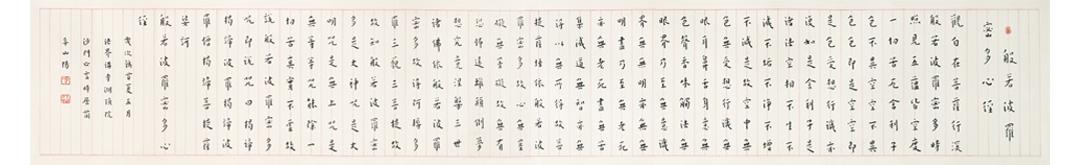 般若波羅
蜜多心經
觀自在菩薩行深
般若波羅蜜多時
照見五蘊皆空度
一切苦厄舍利子
色不異空空不異
色色即是空空即
是色受想行識亦
復如是舍利子是
諸法空相不生不
滅不垢不淨不增
不減是故空中無
色無受想行識無
眼耳鼻舌身意無
色聲香味觸法無
眼界乃至無意識
界無無明亦無無明
盡乃至無老死
亦無老死盡無苦
集滅道無智亦無
得以無所得故菩
提薩埵依般若波
羅蜜多故心無罣
礙無罣礙故無有
恐怖遠離顛倒夢
想究竟涅槃三世
諸佛依般若波羅
蜜多故得阿耨多
羅三藐三菩提故
知般若波羅蜜多
是大神咒是大
明咒是無上咒是
無等等咒能除一
切苦真實不虛故
說般若波羅蜜多
咒即說咒曰
揭諦揭諦波羅揭諦波
羅僧揭諦菩提薩
婆訶
般若波羅蜜多心
經
夏五月
沙門心